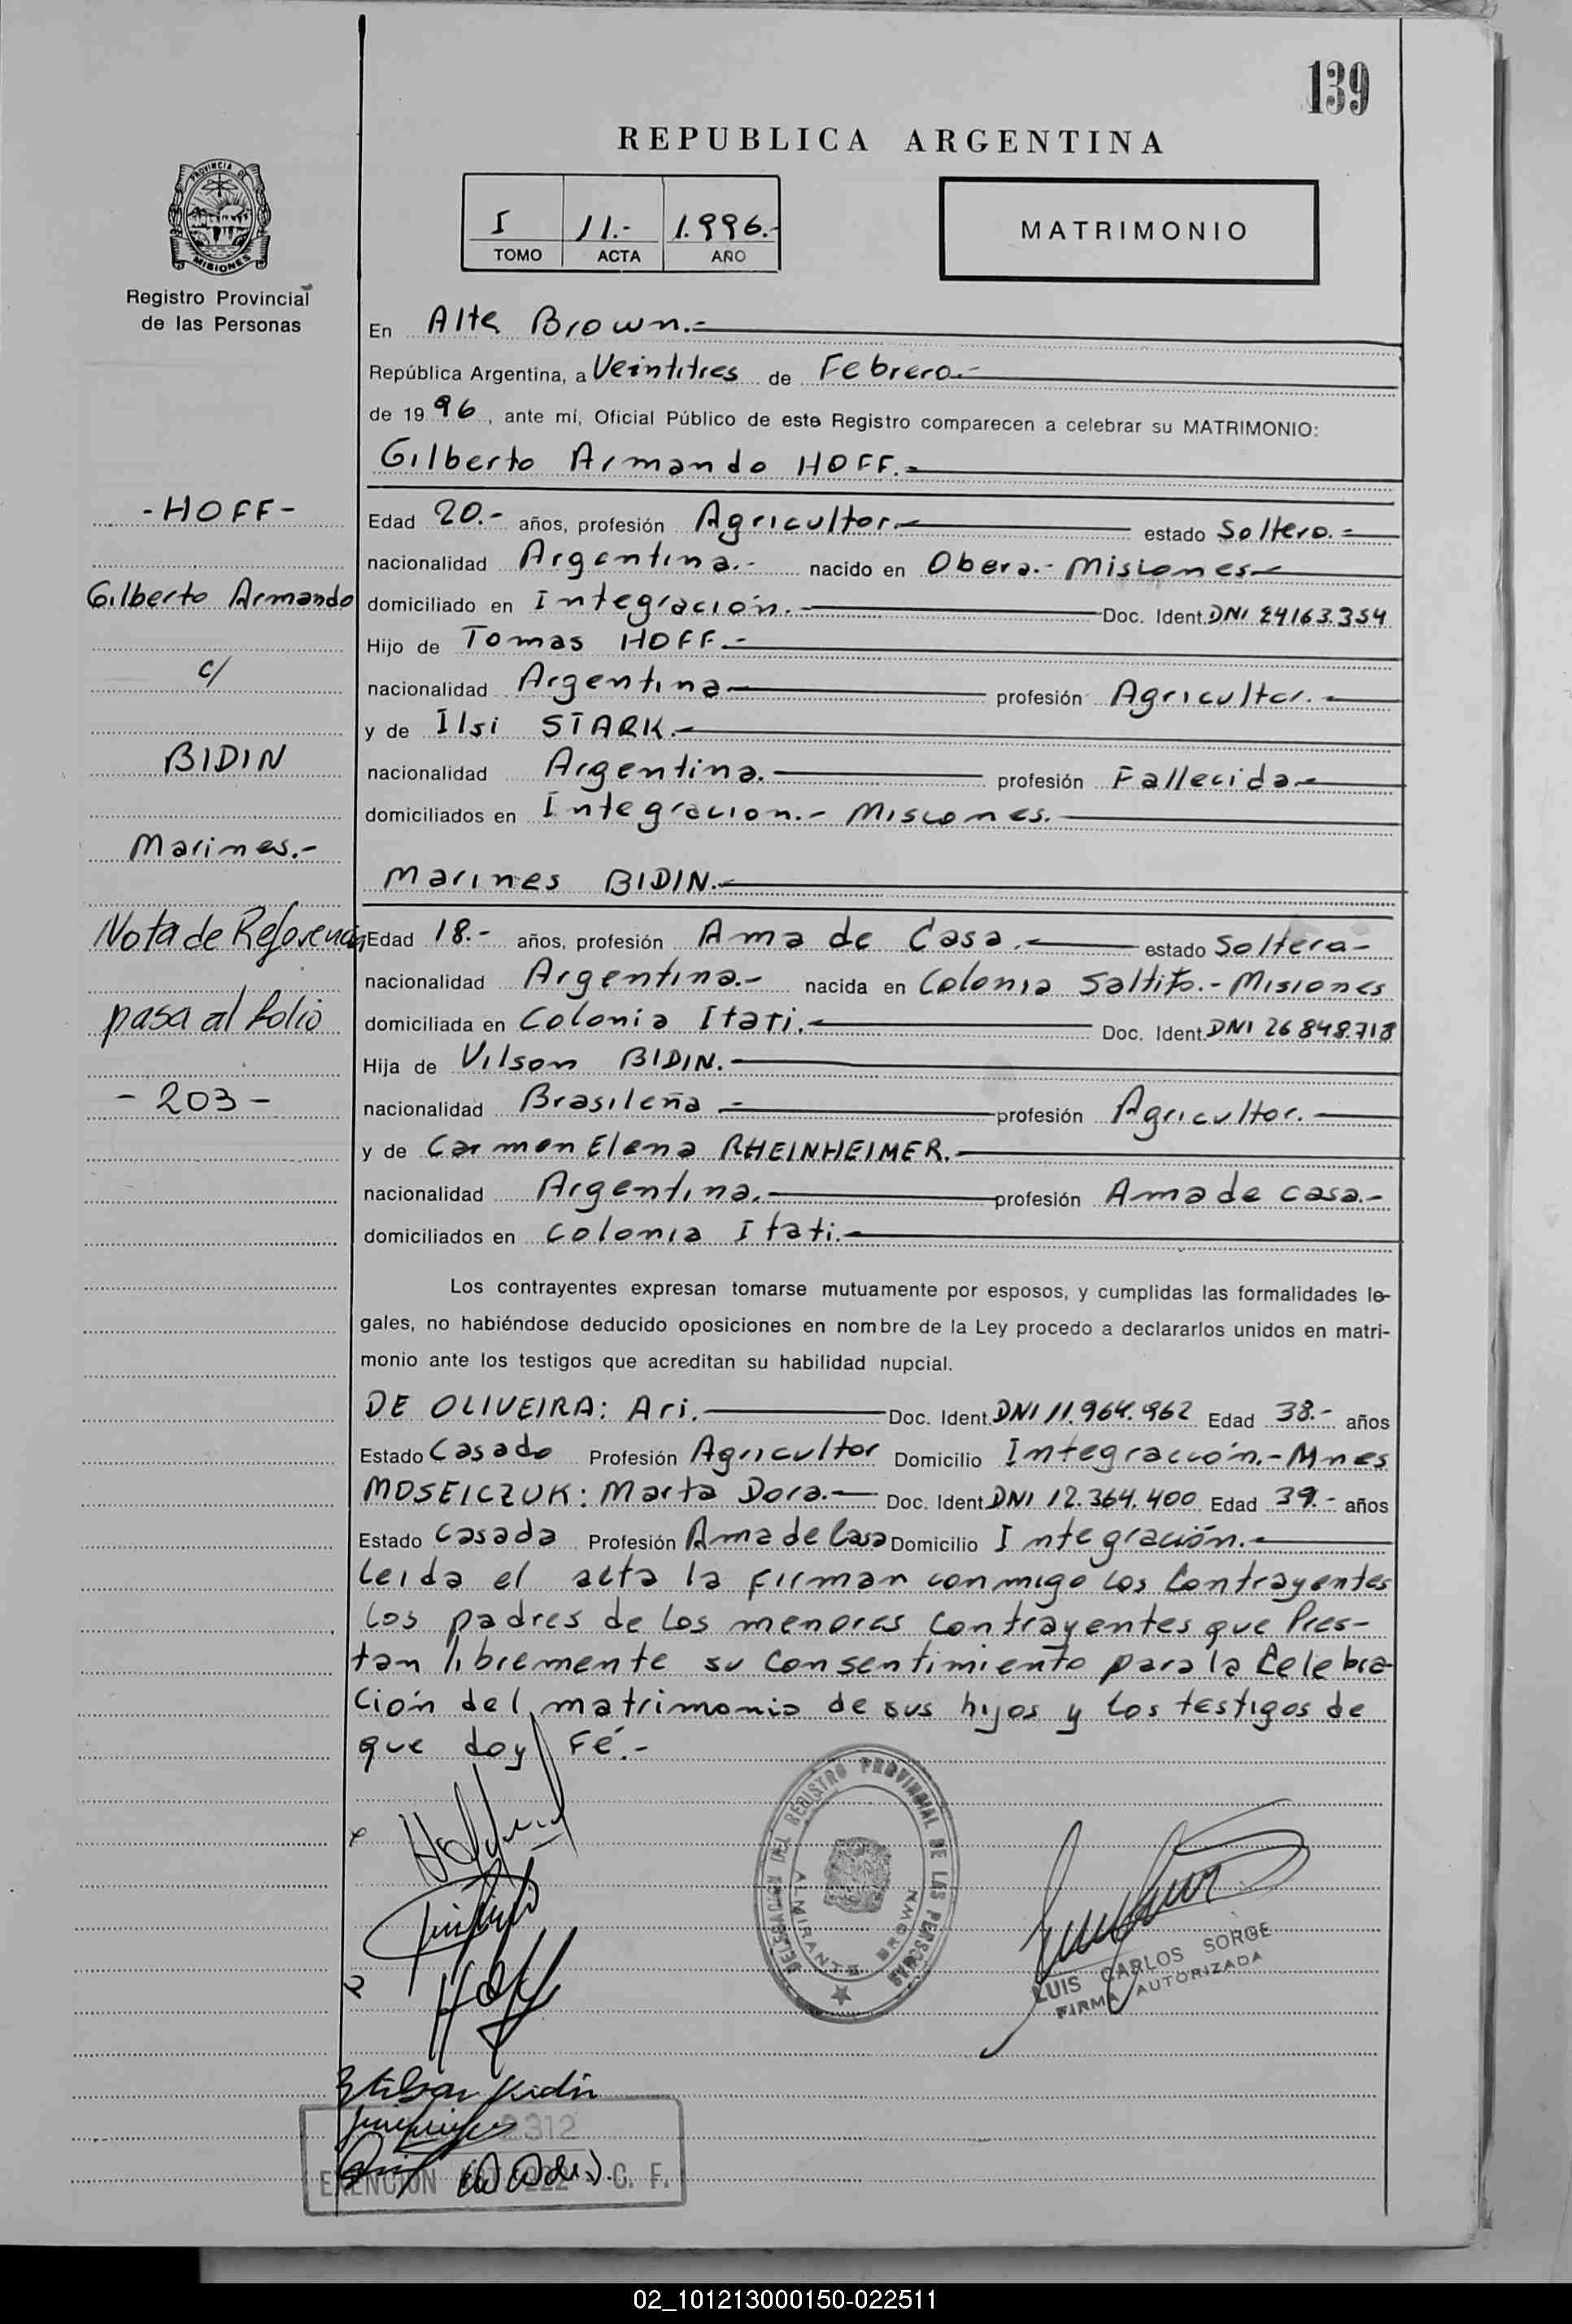 139
REPUBLICA ARGENTINA
I 11.- 1.996.-
TOMO ACTA AÑO
MATRIMONIO
PROVINCIA DE
MISIONES
Registro Provincial
de las Personas
En Alte Brown.-
República Argentina, a Veintitres de Febrero.-
de 1996, ante mí, Oficial Público de este Registro comparecen a celebrar su MATRIMONIO:
Gilberto Armando HOFF.-
-HOFF-
Gilberto Armando
c/
BIDIN
Marines.-
Nota de Referencia
pasa al folio
- 203 -
Edad 20.- años, profesión Agricultor.- estado Soltero.-
nacionalidad Argentina.- nacido en Obera.- Misiones-
domiciliado en Integración.- Doc. Ident. DNI 24163.354
Hijo de Tomas HOFF.-
nacionalidad Argentina- profesión Agricultor.-
y de Ilsi STARK.-
nacionalidad Argentina.- profesión Fallecida-
domiciliados en Integracion.- Misiones.-
Marines BIDIN.-
Edad 18.- años, profesión Ama de Casa.- estado Soltera-
nacionalidad Argentina.- nacida en Colonia Saltito.- Misiones
domiciliada en Colonia Itati.- Doc. Ident. DNI 26848.718
Hija de Vilson BIDIN.-
nacionalidad Brasileña- profesión Agricultor.-
y de Carmen Elena RHEINHEIMER.-
nacionalidad Argentina.- profesión Ama de casa.-
domiciliados en Colonia Itati.-
Los contrayentes expresan tomarse mutuamente por esposos, y cumplidas las formalidades le-
gales, no habiéndose deducido oposiciones en nombre de la Ley procedo a declararlos unidos en matri-
monio ante los testigos que acreditan su habilidad nupcial.
DE OLIVEIRA: Ari.- Doc. Ident. DNI 11.964.962 Edad 38.- años
Estado Casado Profesión Agricultor Domicilio Integración.-Mnes
MOSEICZUK: Marta Dora.- Doc. Ident. DNI 12.364.400 Edad 39.- años
Estado Casada Profesión Ama de Casa Domicilio Integración.-
Leida el acta la firman conmigo los Contrayentes
los padres de los menores Contrayentes que Pres-
tan libremente su consentimiento para la Celebra-
ción del matrimonio de sus hijos y los testigos de
que doy Fé.-
DELEGACION DEL REGISTRO PROVINCIAL DE LAS PERSONAS
ALMIRANTE BROWN
LUIS CARLOS SORGE
FIRMA AUTORIZADA
Hoff
2312
EXENCION 222 C. F.
02_101213000150-022511